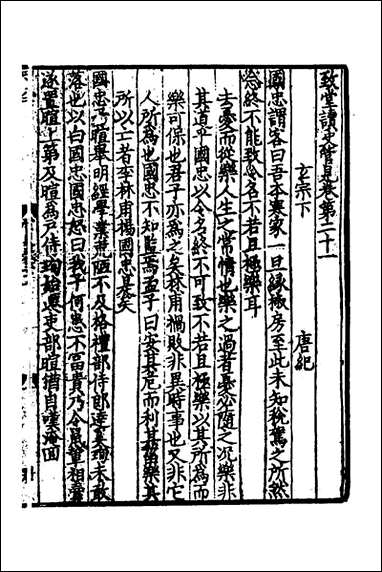 致堂讀史管見卷第二十一
玄宗下 唐紀
國忠謂客曰吾本寒家一旦緣椒房至此未知稅駕之所然
念終不能致令名不若且極樂耳
去憂而從樂人生之常情也樂之過者憂必隨之况樂非
其道乎國忠以令名終不可致不若且極樂以其所為而
樂可保也君子亦為之矣林甫禍敗非異時事也又非它
人所為也國忠不知監焉孟子曰安其危而利其菑樂其
所以亡者李林甫楊國忠是矣
國忠子暄舉明經學業荒陋不及格禮部侍郎達奚珣未敢
落也以白國忠國忠怒曰我子何患不富貴乃令鼠輩相賣
遂置暄上第及暄為戶侍珣始遷吏部暄猶自嘆淹回